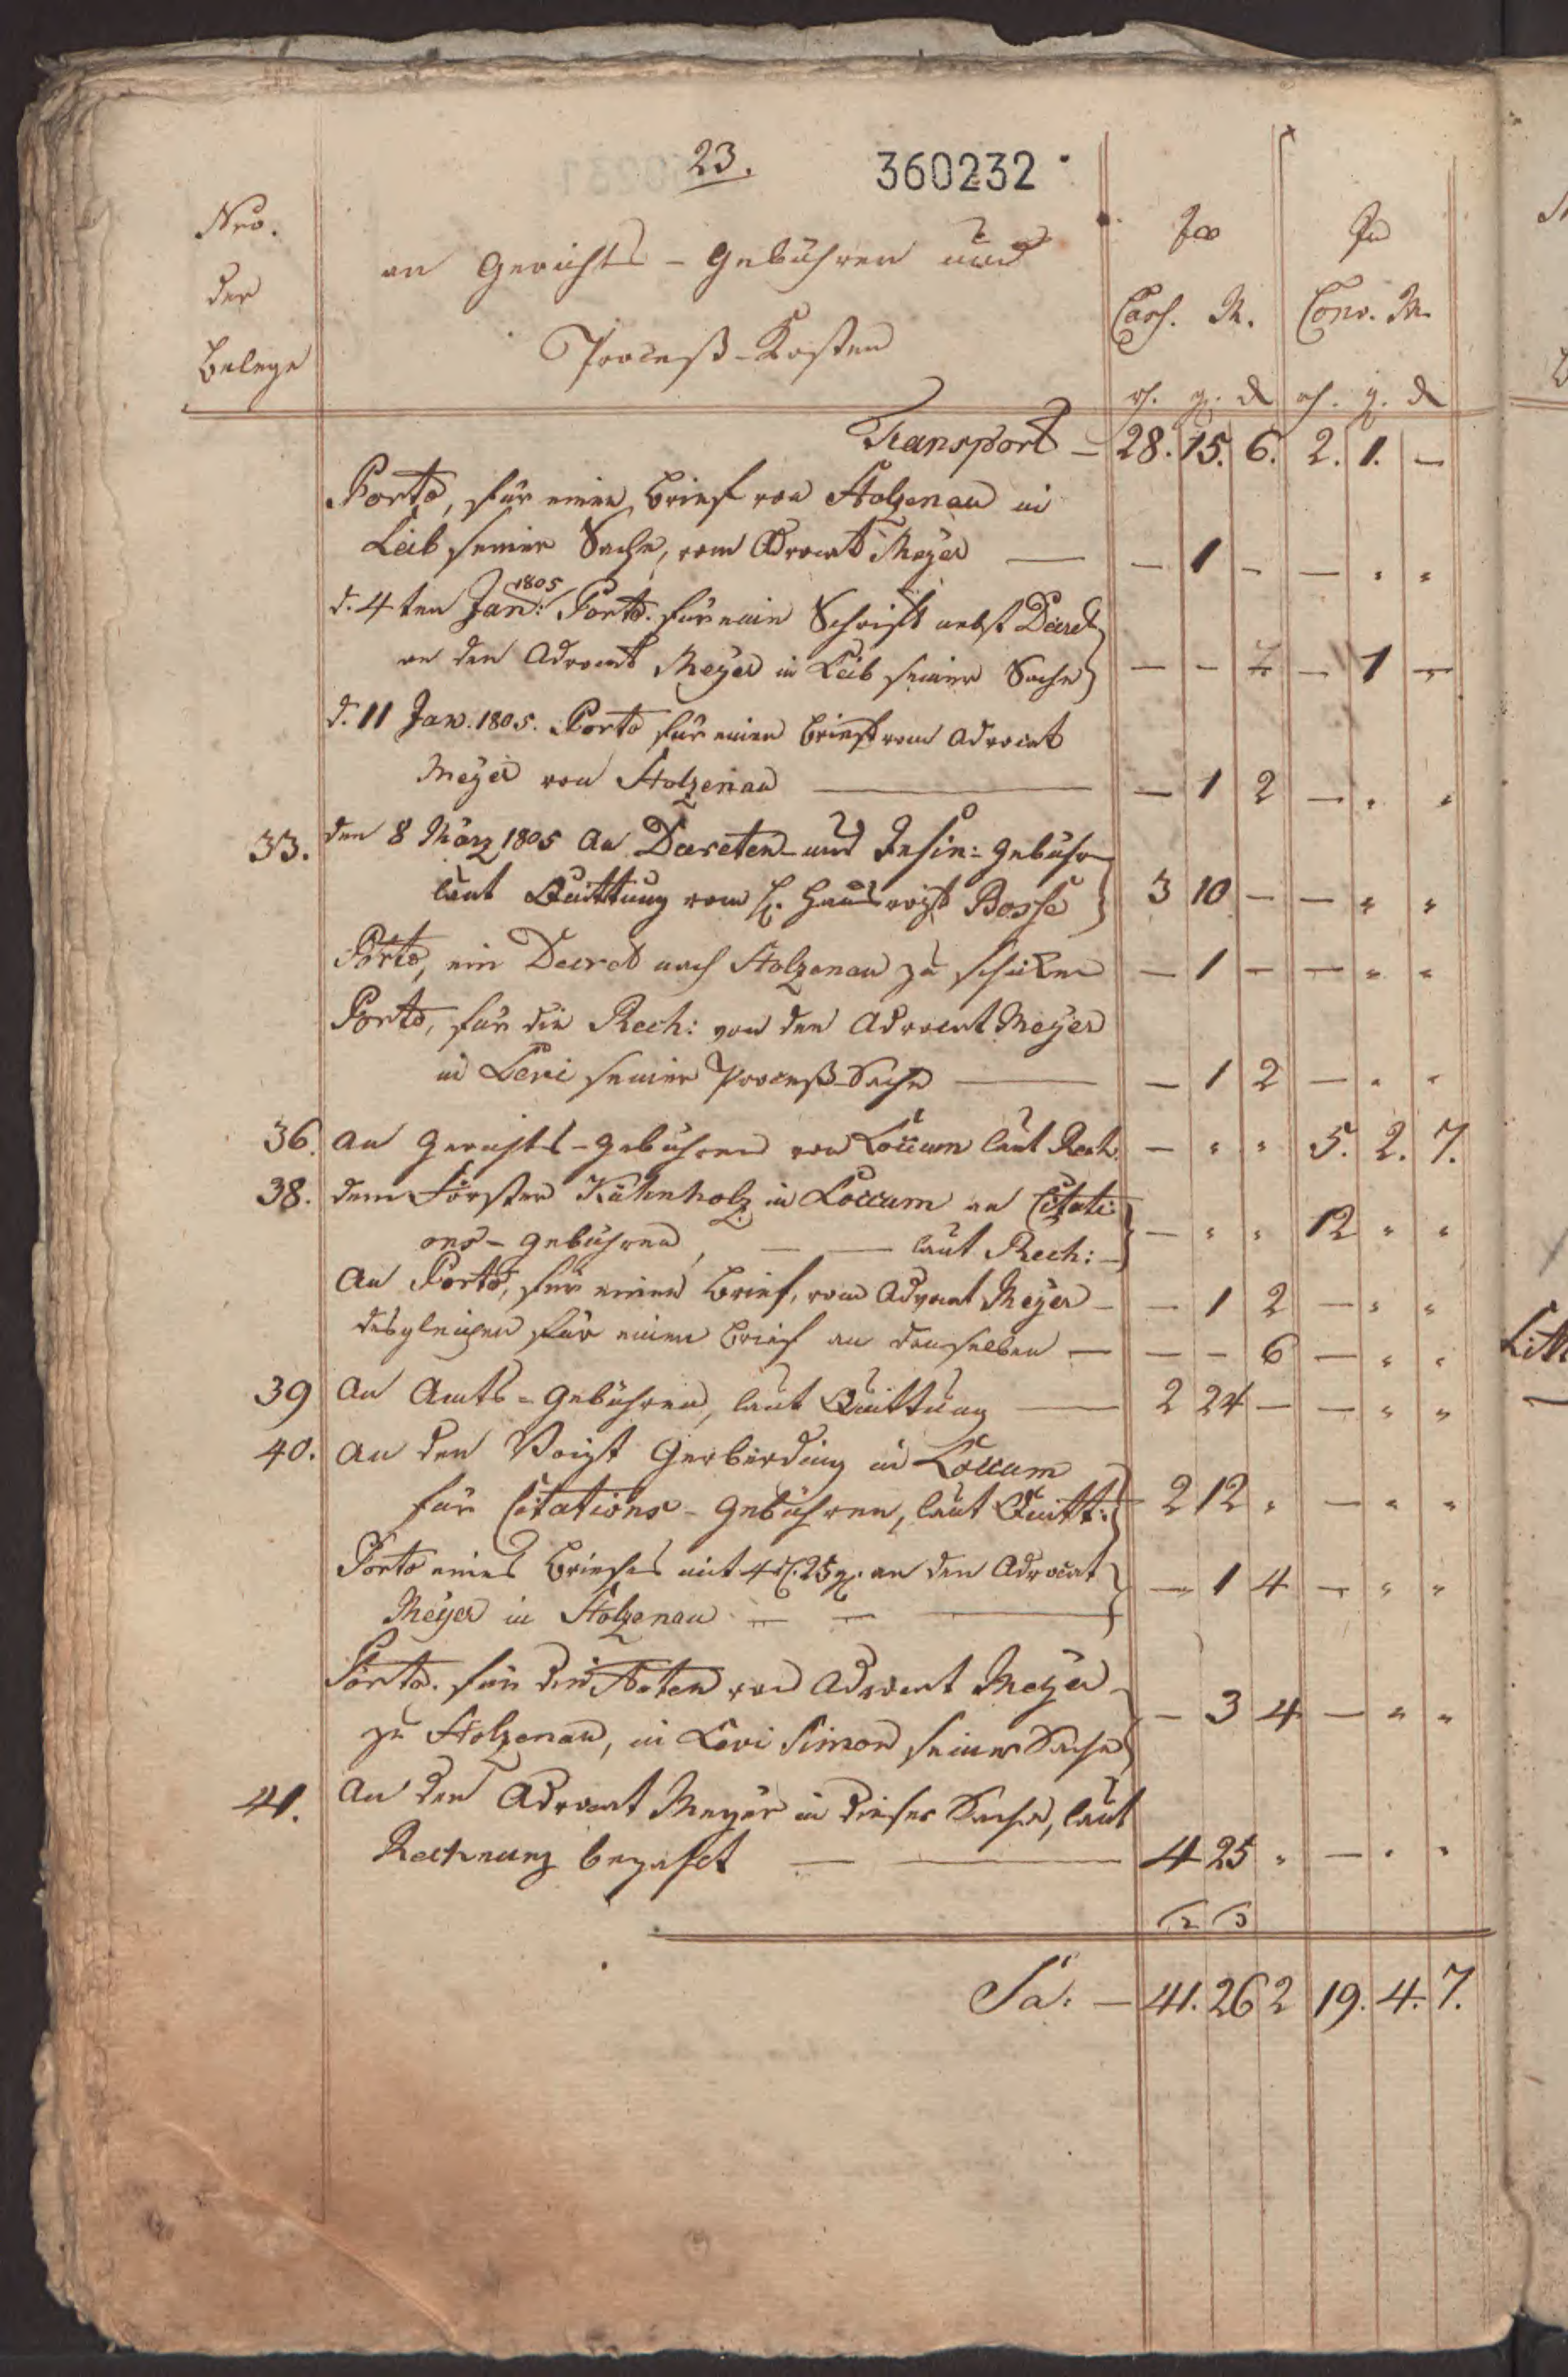 23.
360232
Nro.
der
Belege
an Gerichts-Gebühren und
Proceß-Kosten
In
Cass. M.
In
Conv. M.
rh. g. d
rh. g. d
Transport — 28. 15. 6. 2. 1. —
Porto, für einen Brief von Stolzenau in
Leib seiner Sache, vom Advocat Meyer — — 1 — — " "
d. 4ten Jan: 1805 Porto. für eine Schrift nebst Decret
an den Advocat Meyer in Leib seiner Sache — — — 1 —
d. 11 Jan. 1805. Porto für einen Brief vom Advocat
Meyer von Stolzenau — — 1 2 — " "
33. den 8 März 1805 An Decreten- und Insin: Gebühr
laut Quittung vom H. Hausvogt Bosse 3 10 — — " "
Porto, ein Decret nach Stolzenau zu schicken — 1 — — " "
Porto, für die Rech: von den Advocat Meyer
in Levi seiner Proceß-Sache — — 1 2 — " "
36. An Gerichts-Gebühren von Loccum laut Rech. — " " 5. 2. 7.
38. dem Förster Kühnholz in Loccum an Citati-
ons-Gebühren, — — laut Rech: — — " " 12 " "
An Porto, für einen Brief, vom Advocat Meyer — — 1 2 — " "
desgleichen für einen Brief an denselben — — — 6 — " "
39 An Amts-Gebühren, laut Quittung — 2 24 — — " "
40. An den Voigt Gerberding in Loccum
für Citations-Gebühren, laut Quitt: 2 12 " — " "
Porto eines Briefes mit 4 rh. 25 g. an den Advocat
Meyer in Stolzenau — — — — 1 4 — " "
Porto. für die Acten von Advocat Meyer
zu Stolzenau, in Levi Simon seiner Sache — 3 4 — " "
41. An den Advocat Meyer in dieser Sache, laut
Rechnung bezahlt — — 4 25 " — " "
Sa: — 41. 26 2 19. 4. 7.